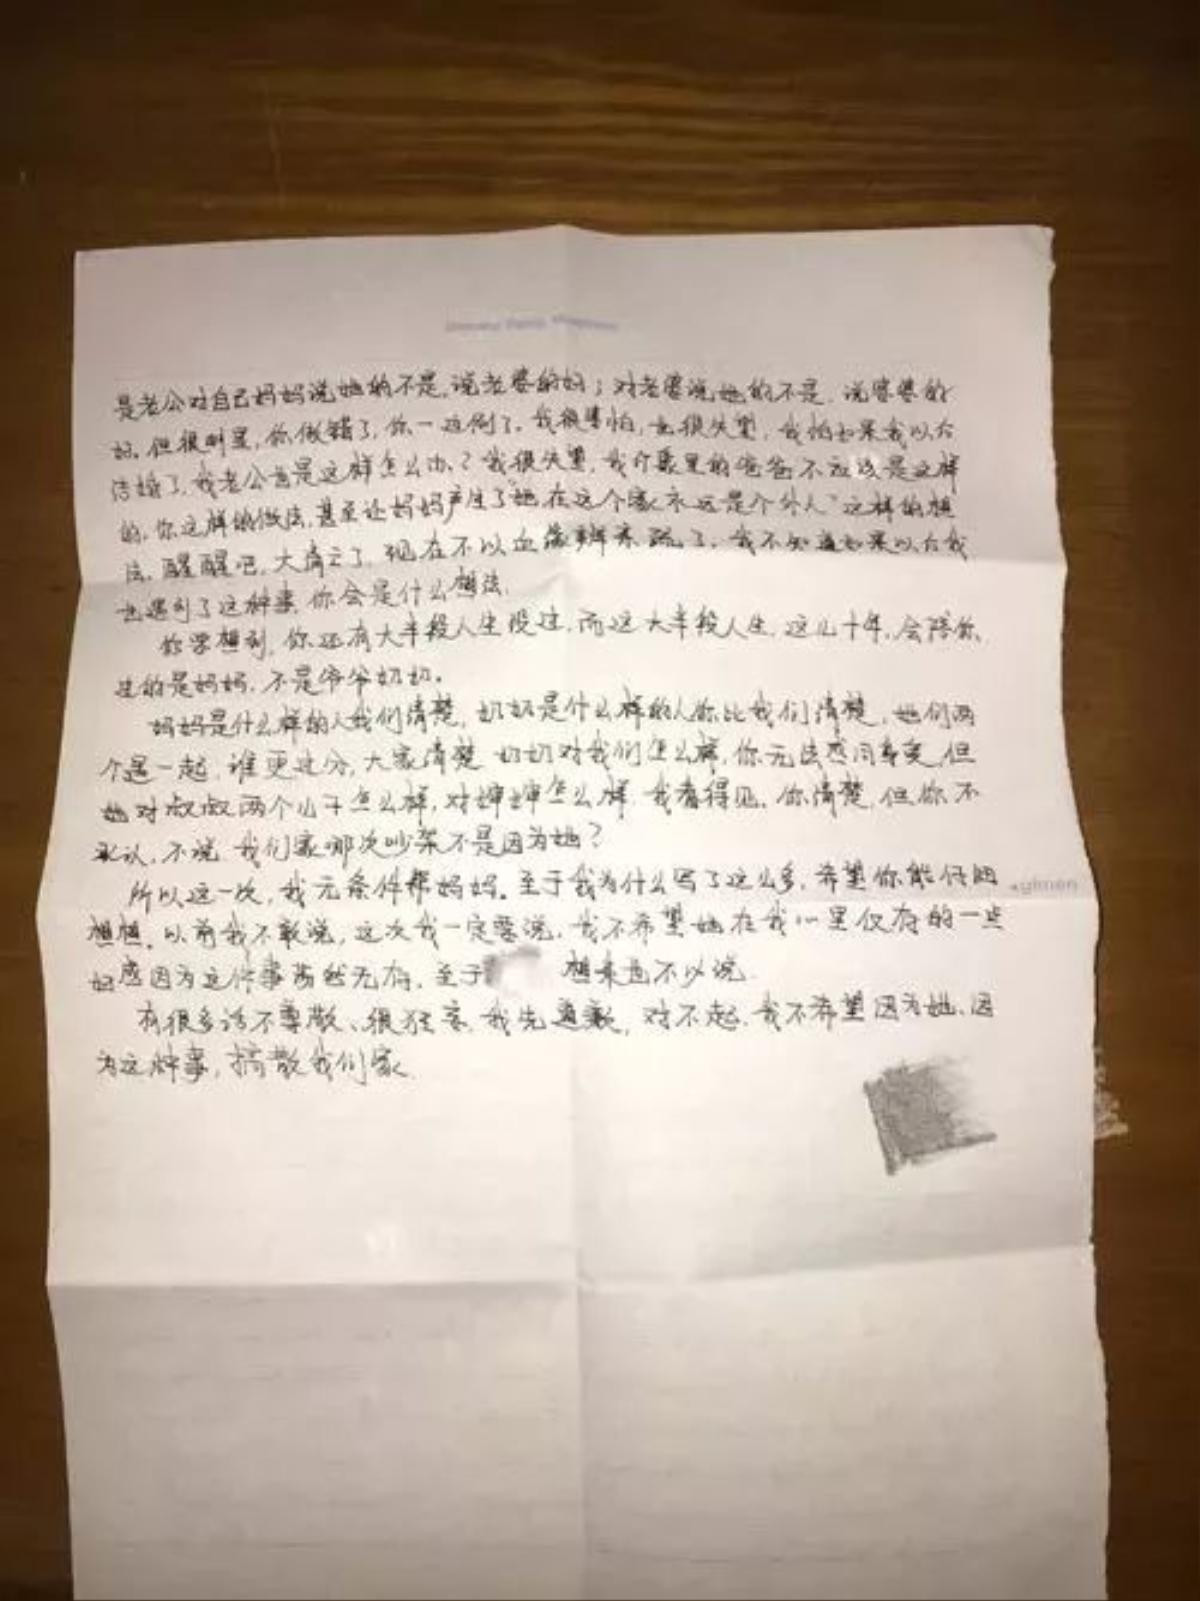 是老公对自己妈妈说她的不是,说老婆的好;对老婆说她的不是,说婆婆的
好。但很明显,你做错了,你一边倒了。我很害怕,也很失望,我怕如果我以后
结婚了,我老公也是这样怎么办?我很失望,我们家里的爸爸不应该是这样
的,你这样的做法,甚至让妈妈产生了“她在这个家永远是个外人”这样的想
法。醒醒吧,大清亡了,现在不以血缘亲疏了。我不知道如果以后我
也遇到了这种事,你会是什么想法。
你要想到,你还有大半段人生没过,而这大半段人生,这几十年,会陪你
走的是妈妈,不是爷爷奶奶。
妈妈是什么样的人我们清楚,奶奶是什么样的人你比我们清楚,她们两
个遇一起,谁更过分,大家清楚。奶奶对我们怎么样,你无法感同身受,但
她对叔叔两个儿子怎么样,对婶婶怎么样,我看得见,你清楚,但你不
承认,不说。我们家哪次吵架不是因为她?
所以这一次,我无条件帮妈妈。至于我为什么写了这么多,希望你能仔细
想想。以前我不敢说,这次我一定要说,我不希望她在我心里仅存的一点
好感因为这件事荡然无存。至于 想来也不以说。
有很多话不尊敬、很狂妄,我先道歉,对不起。我不希望因为她、因
为这种事,搞散我们家。